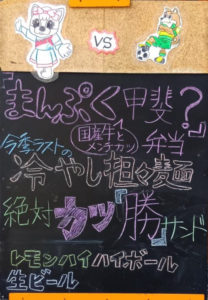 VS
『まんぷく甲斐?
国産牛と
メンチカツ
弁当
今季ラストの
冷やし担々麺
絶対カツ『勝』サンド
レモンハイ ハイボール
生ビール